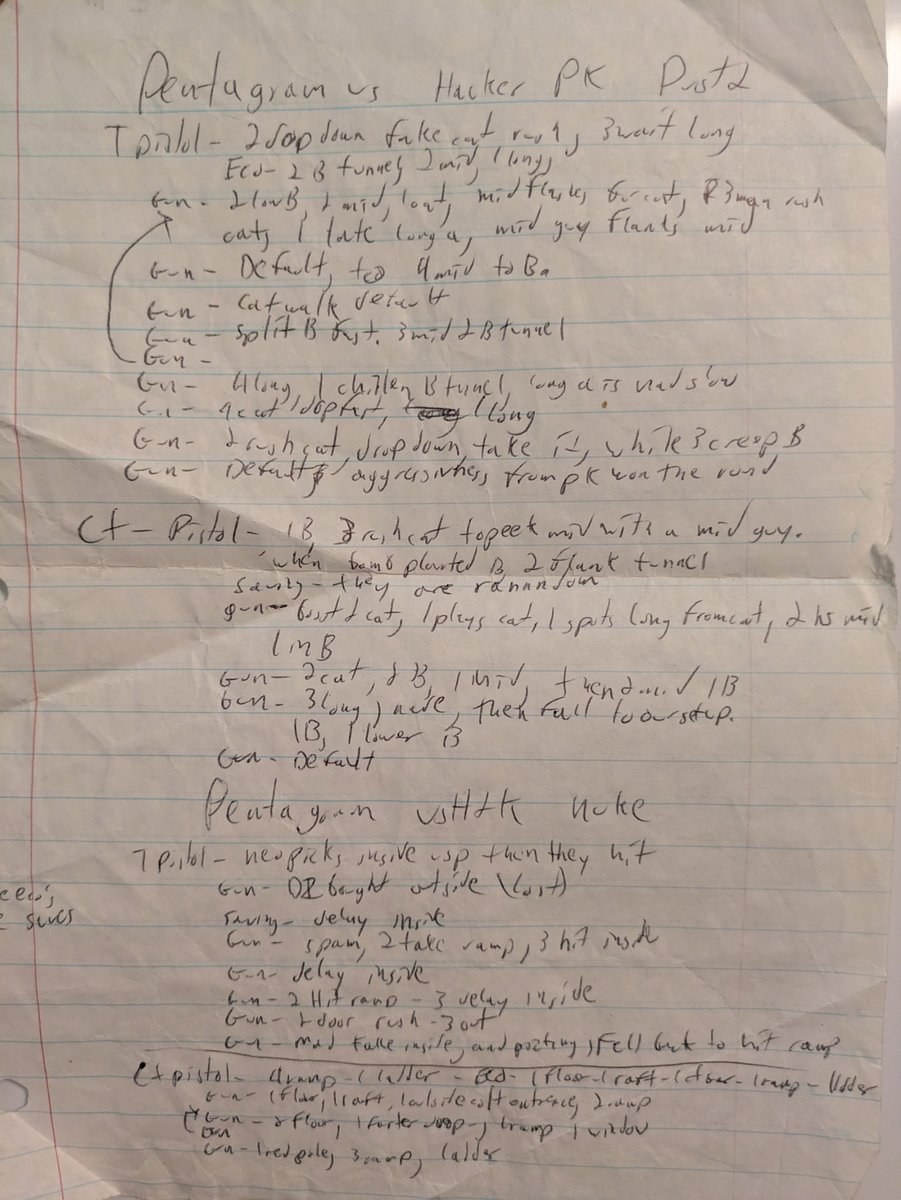 Pentagram vs Hacker PK Dust2
T pistol - 2 drop down fake cat rush, 3 wait long
Eco - 2 B tunnel, 2 mid, 1 long,
Gun - 2 low B, 2 mid, 1 cat, mid flashes for cat, 3 man rush
cat, 1 late long a, mid guy flanks mid
Gun - Default, 4 mid to B.
Gun - catwalk default
Gun - split B fast. 3 mid 2 B tunnel
Gun -
Gun - 4 long, 1 chillen B tunnel, long a is nad slow
Gun - 4 cat 1 drop fast, 1 long
Gun - 2 rush cat, drop down, take it, while 3 creep B
Gun - Default, aggressivness from pk won the round
Ct - Pistol - 1B, 3 rush cat to peek mid with a mid guy.
when bomb planted B, 2 flank tunnel
Saving - they are rannndom
gun - boost 2 cat, 1 plays cat, 1 spots long from cat, 2 mid
1 in B
Gun - 2 cat, 2 B, 1 mid, then 2 mid 1B
Gun - 3 long, nade, then fall to our setup.
1B, 1 lower B
Gun - Default
Pentagram vs H4K nuke
T pistol - neo picks inside usp then they hit
Gun - bought outside (lost)
eeo's
saves
saving - delay inside
Gun - spam, 2 take ramp, 3 hit inside
Gun - delay inside
Gun - 2 Hit ramp - 3 delay inside
Gun - 2 door rush - 3 out
Gun - mad fake inside, and posting, fell back to hit ramp
Ct pistol - 4 ramp - 1 ladder - Eco - 1 floor - 1 raft - 1 door - 1 ramp - 1 ladder
Gun - 1 floor, 1 raft, 1 outside at entrance, 2 ramp
Gun - 2 floor, 1 ramp 1 window
Gun
Gun - 1 red pole, 3 ramp, 1 ladder